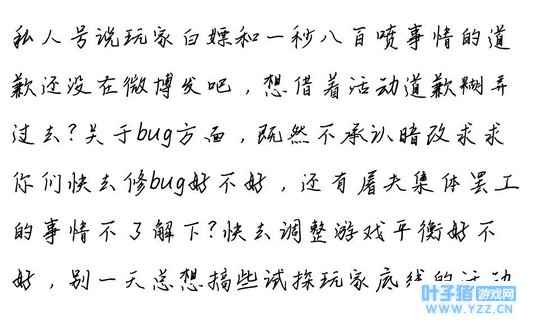 私人号说玩家白嫖和一秒八百喷事情的道
歉还没在微博发吧，想借着活动道歉糊弄
过去？关于bug方面，既然不承认暗改求求
你们快去修bug好不好，还有屠夫集体罢工
的事情不了解下？快去调整游戏平衡好不
好，别一天总想搞些试探玩家底线的活动
叶子猪游戏网
WWW.YZZ.CN